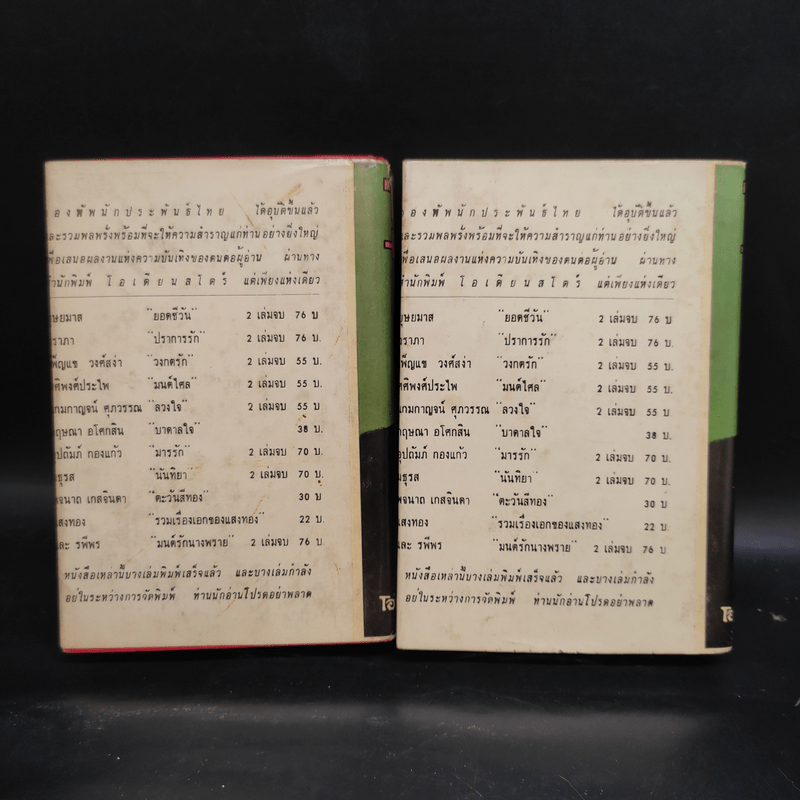 องทัพนักประพันธ์ไทย ได้อุบัติขึ้นแล้ว
และรวมพลพรั่งพร้อมที่จะให้ความสำราญแก่ท่านอย่างยิ่งใหญ่
พื่อเสนอผลงานแห่งความบันเทิงของตนต่อผู้อ่าน ผ่านทาง
ำนักพิมพ์ โอเดียนสโตร์ แต่เพียงแห่งเดียว
ุษยมาส "ยอดชีวัน" 2 เล่มจบ 76 บ
ราภา "ปราการรัก" 2 เล่มจบ 76 บ.
พ็ญแข วงศ์สง่า "วงกตรัก" 2 เล่มจบ 55 บ.
ศิพงศ์ประไพ "มนต์ไศล" 2 เล่มจบ 55 บ.
กมกาญจน์ ศุภวรรณ "ลวงใจ" 2 เล่มจบ 55 บ
ฤษณา อโศกสิน "บาดาลใจ" 38 บ.
ุปถัมภ์ กองแก้ว "มารรัก" 2 เล่มจบ 70 บ.
ธุรส "นันทิยา" 2 เล่มจบ 70 บ.
พจนาถ เกสจินดา "ตะวันสีทอง" 30 บ
แสงทอง "รวมเรื่องเอกของแสงทอง" 22 บ.
และ รพีพร "มนต์รักนางพราย" 2 เล่มจบ 76 บ
หนังสือเหล่านี้บางเล่มพิมพ์เสร็จแล้ว และบางเล่มกำลัง
อยู่ในระหว่างการจัดพิมพ์ ท่านนักอ่านโปรดอย่าพลาด
องทัพนักประพันธ์ไทย ได้อุบัติขึ้นแล้ว
และรวมพลพรั่งพร้อมที่จะให้ความสำราญแก่ท่านอย่างยิ่งใหญ่
พื่อเสนอผลงานแห่งความบันเทิงของตนต่อผู้อ่าน ผ่านทาง
ำนักพิมพ์ โอเดียนสโตร์ แต่เพียงแห่งเดียว
ุษยมาส "ยอดชีวัน" 2 เล่มจบ 76 บ
ราภา "ปราการรัก" 2 เล่มจบ 76 บ.
พ็ญแข วงศ์สง่า "วงกตรัก" 2 เล่มจบ 55 บ.
ศิพงศ์ประไพ "มนต์ไศล" 2 เล่มจบ 55 บ.
กมกาญจน์ ศุภวรรณ "ลวงใจ" 2 เล่มจบ 55 บ
ฤษณา อโศกสิน "บาดาลใจ" 38 บ.
ุปถัมภ์ กองแก้ว "มารรัก" 2 เล่มจบ 70 บ.
ธุรส "นันทิยา" 2 เล่มจบ 70 บ.
พจนาถ เกสจินดา "ตะวันสีทอง" 30 บ
แสงทอง "รวมเรื่องเอกของแสงทอง" 22 บ.
และ รพีพร "มนต์รักนางพราย" 2 เล่มจบ 76 บ
หนังสือเหล่านี้บางเล่มพิมพ์เสร็จแล้ว และบางเล่มกำลัง
อยู่ในระหว่างการจัดพิมพ์ ท่านนักอ่านโปรดอย่าพลาด